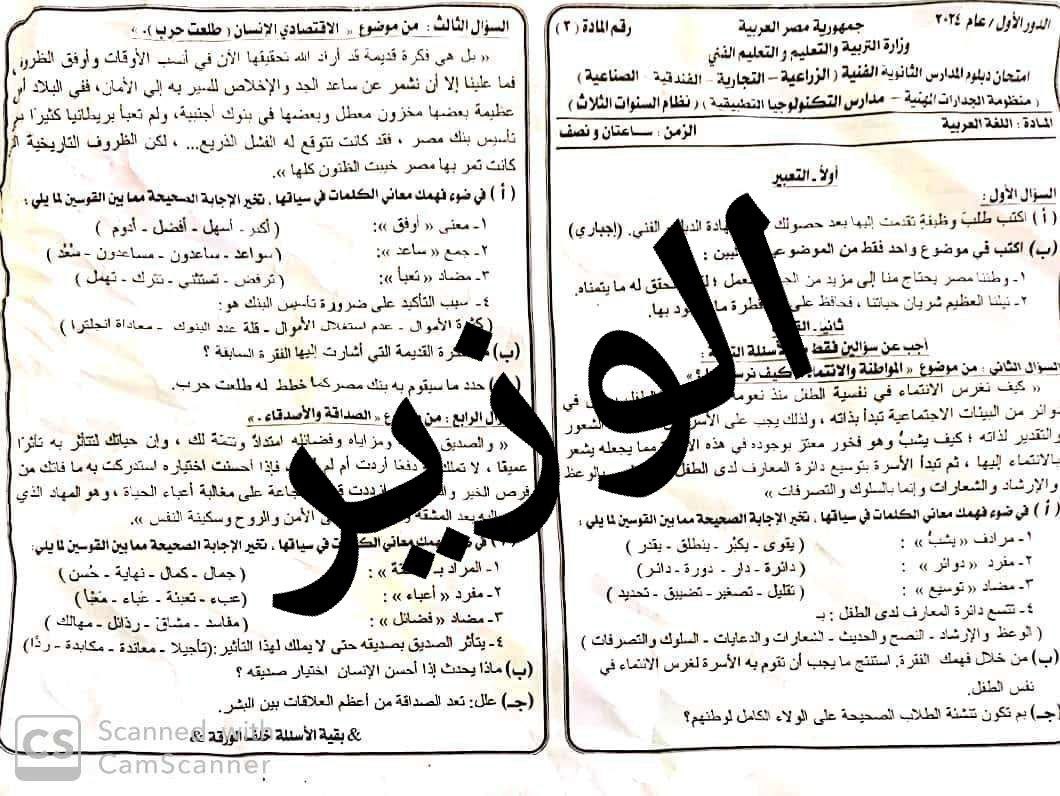 الدور الأول/ عام ٢٠٢٤
جمهورية مصر العربية
رقم المادة ( ٣ )
وزارة التربية والتعليم و التعليم الفني
امتحان دبلوم المدارس الثانوية الفنية ( الزراعية - التجارية - الفندقية - الصناعية )
( منظومة الجدارات المهنية - مدارس التكنولوجيا التطبيقية ) ( نظام السنوات الثلاث )
المادة : اللغة العربية
الزمن : ساعتان و نصف
أولاً ـ التعبير
السؤال الأول :
( أ ) اكتب طلب وظيفة تقدمت إليها بعد حصولك الفني. (إجباري)
(ب) اكتب في موضوع واحد فقط من
١ـ وطننا مصر يحتاج منا إلى مزيد من له ما يتمناه.
٢ـ نيلنا العظيم شريان حياتنا ، فحافظ على بها.
ثانيا ـ
أجب عن سؤالين فقط
السؤال الثاني : من موضوع « المواطنة والانتماء
« كيف نغرس الانتماء في نفسية الطفل منذ نعومة في
دوائر من البيئات الاجتماعية تبدأ بذاته ، ولذلك يجب على الشعور
والتقدير لذاته ؛ كيف يشبُّ وهو فخور معتز بوجوده في هذه مما يجعله يشعر
بالانتماء إليها ، ثم تبدأ الأسرة بتوسيع دائرة المعارف لدى الطفل بالوعظ
والإرشاد والشعارات وإنما بالسلوك والتصرفات »
( أ ) في ضوء فهمك معاني الكلمات في سياقها ، تخير الإجابة الصحيحة مما بين القوسين لما يلي :
١ـ مرادف « يشبُّ » : ( يقوى - يكبُر - ينطلق - يقدر )
٢ـ مفرد « دوائر » : ( دائرة - دار - دورة - دائر)
٣ـ مضاد « توسيع » : ( تقليل - تصغير - تضييق - تحديد )
٤ـ تتسع دائرة المعارف لدى الطفل : بـ
( الوعظ والإرشاد - النصح والحديث - الشعارات والدعايات - السلوك والتصرفات )
(ب) من خلال فهمك الفقرة. استنتج ما يجب أن تقوم به الأسرة لغرس الانتماء في
نفس الطفل.
(جـ) بم تكون تنشئة الطلاب الصحيحة على الولاء الكامل لوطنهم؟
السؤال الثالث : من موضوع « الاقتصادي الإنسان ( طلعت حرب ). »
« بل هي فكرة قديمة قد أراد الله تحقيقها الآن في أنسب الأوقات وأوفق الظرو
فما علينا إلا أن نشمر عن ساعد الجد والإخلاص للسير به إلى الأمان، ففي البلاد
عظيمة بعضها مخزون معطل وبعضها في بنوك أجنبية، ولم تعبأ بريطانيا كثيرًا
تأسيس بنك مصر ، فقد كانت تتوقع له الفشل الذريع... ، لكن الظروف التاريخية
كانت تمر بها مصر خيبت الظنون كلها ».
( أ ) في ضوء فهمك معاني الكلمات في سياقها ، تخير الإجابة الصحيحة مما بين القوسين لما يلي :
١ـ معنى « أوفق »: ( أكبر - أسهل - أفضل - أدوم )
٢ـ جمع « ساعد »: ( سواعد - ساعدون - مساعدون - سُعُد )
٣ـ مضاد « تعبأ »: ( ترفض - تستثني - تترك - تهمل )
٤ـ سبب التأكيد على ضرورة تأسيس البنك هو:
( كثرة الأموال - عدم استغلال الأموال - قلة عدد البنوك - معاداة انجلترا )
(ب) القديمة التي أشارت إليها الفقرة السابقة ؟
حدد ما سيقوم به بنك مصر كما خطط له طلعت حرب.
الرابع : من « الصداقة والأصدقاء . »
« والصديق ومزاياه وفضائله امتدادٌ وتتمّة لك ، وإن حياتك لتتأثر به تأثرًا
عميقًا ، لا تملك دفعًا أردت أم لم فإذا أحسنت اختياره استدركت به ما فاتك من
فرص الخير على مغالبة أعباء الحياة ، وهو المهاد الذي
إليه بعد المشقة الأمن والروح وسكينة النفس ».
في ضوء فهمك معاني في سياقها ، تخير الإجابة الصحيحة مما بين القوسين لما يلي:
١ـ المراد بـ ( جمال - كمال - نهاية - حُسن )
٢ـ مفرد « أعباء » : (عبء - تعبئة - عَباء - مَعْبأ )
٣ـ مضاد « فضائل »: ( مفاسد - مشاقّ - رذائل - مهالك )
٤ـ يتأثر الصديق بصديقه حتى لا يملك لهذا التأثير :(تأجيلا - معاندة - مكابدة - ردًّا)
(ب) ماذا يحدث إذا أحسن الإنسان اختيار صديقه ؟
(جـ) علل: تعد الصداقة من أعظم العلاقات بين البشر.
& بقية الأسئلة خلف الورقة &
الوزير
CS Scanned with
CamScanner